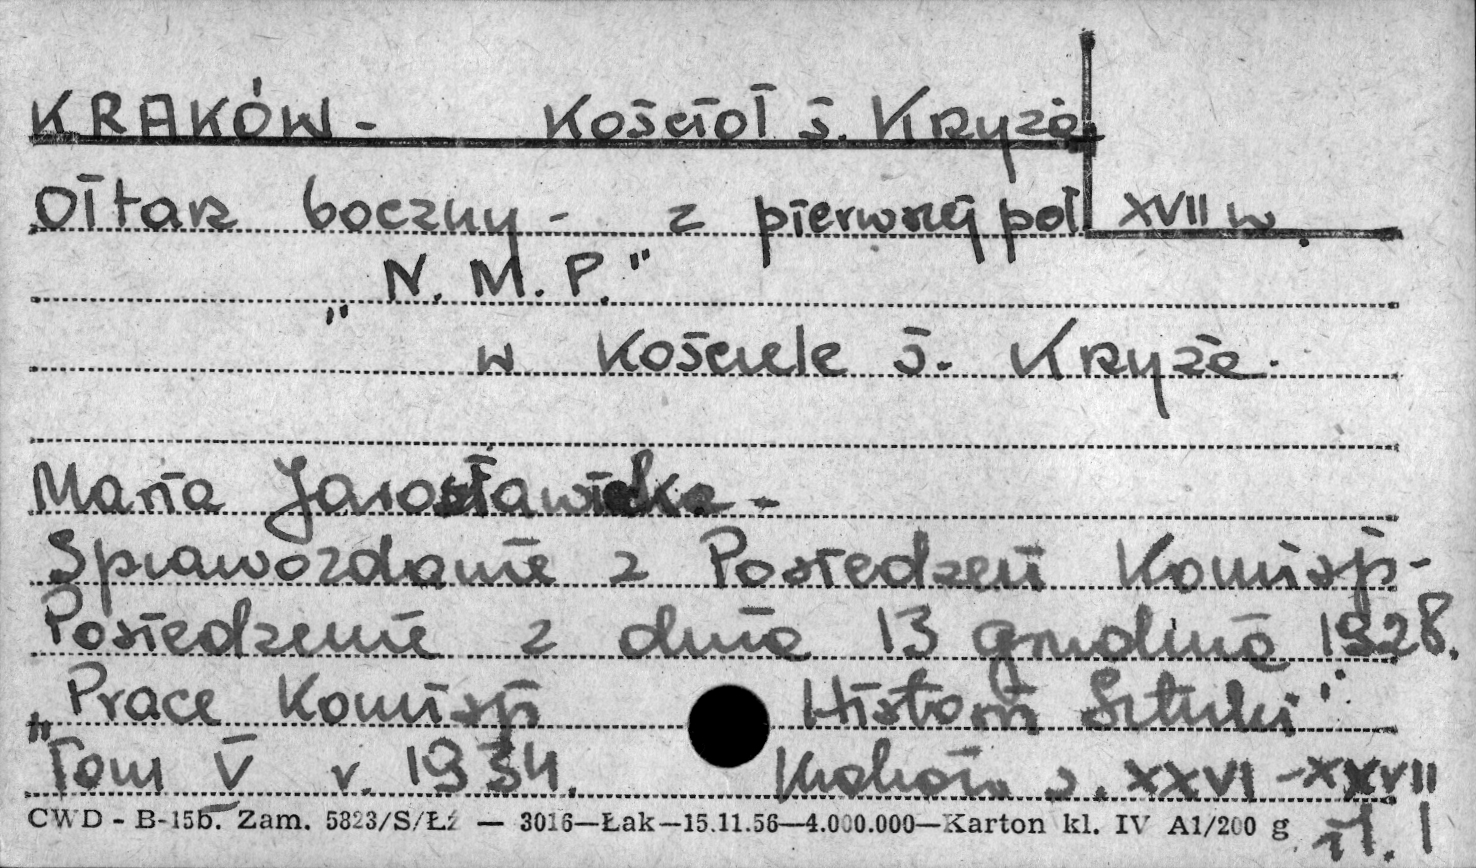 KRAKÓW - Kościół ś. Kryża
Ołtarz boczny - z pierwszej poł XVII w.
„N. M. P."
w Kościele ś. Kryża.
Maria Jarosławiecka -
Sprawozdanie z Posiedzeń Komisji -
Posiedzenie z dnia 13 grudnia 1928.
„Prace Komisji Historii Sztuki"
Tom V r. 1934. Kraków s. XXVI - XXVII
CWD - B-15b. Zam. 5823/S/Łź — 3016—Łak—15.11.56—4.000.000—Karton kl. IV A1/200 g
il. 1